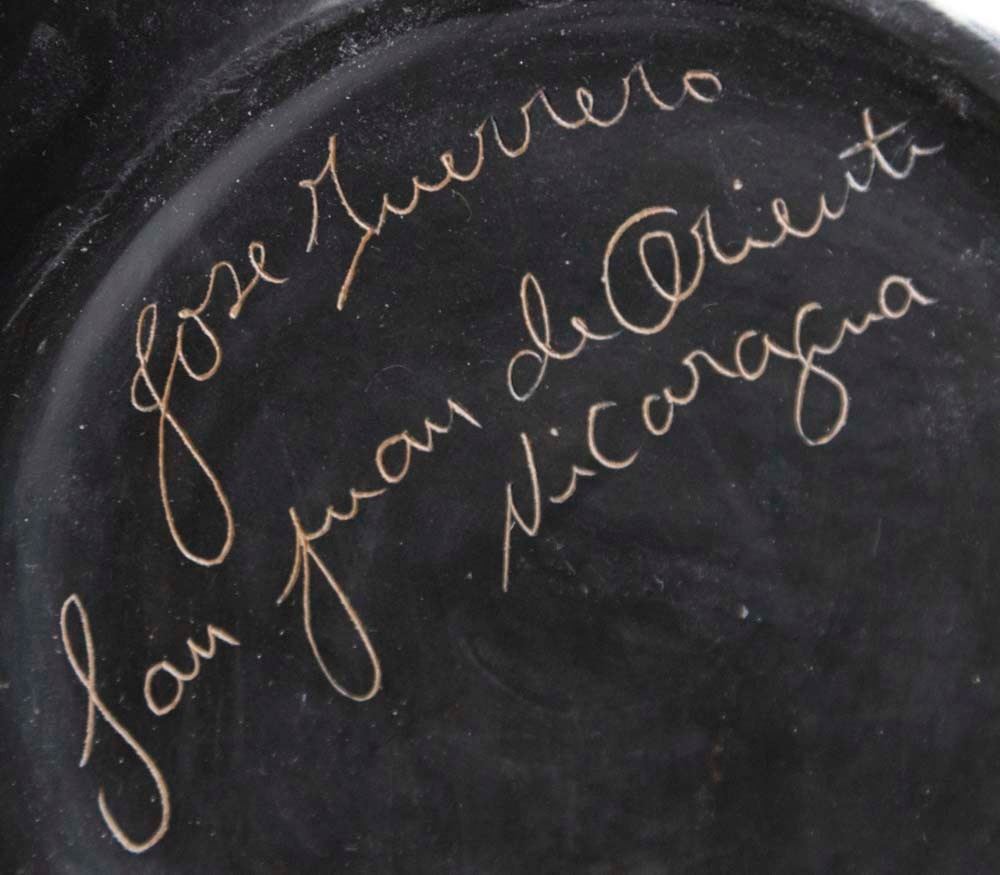 Jose Guerrero
San juan de Oriente
Nicaragua